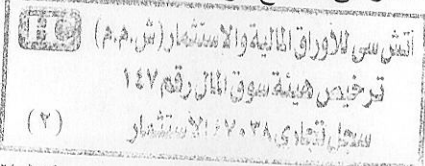 اتش سى للاوراق المالية والاستثمار (ش.م.م)
ترخيص هيئة سوق المال رقم ١٤٧
سجل تجارى ٤٧٠٣٨ الاستثمار
(٢)